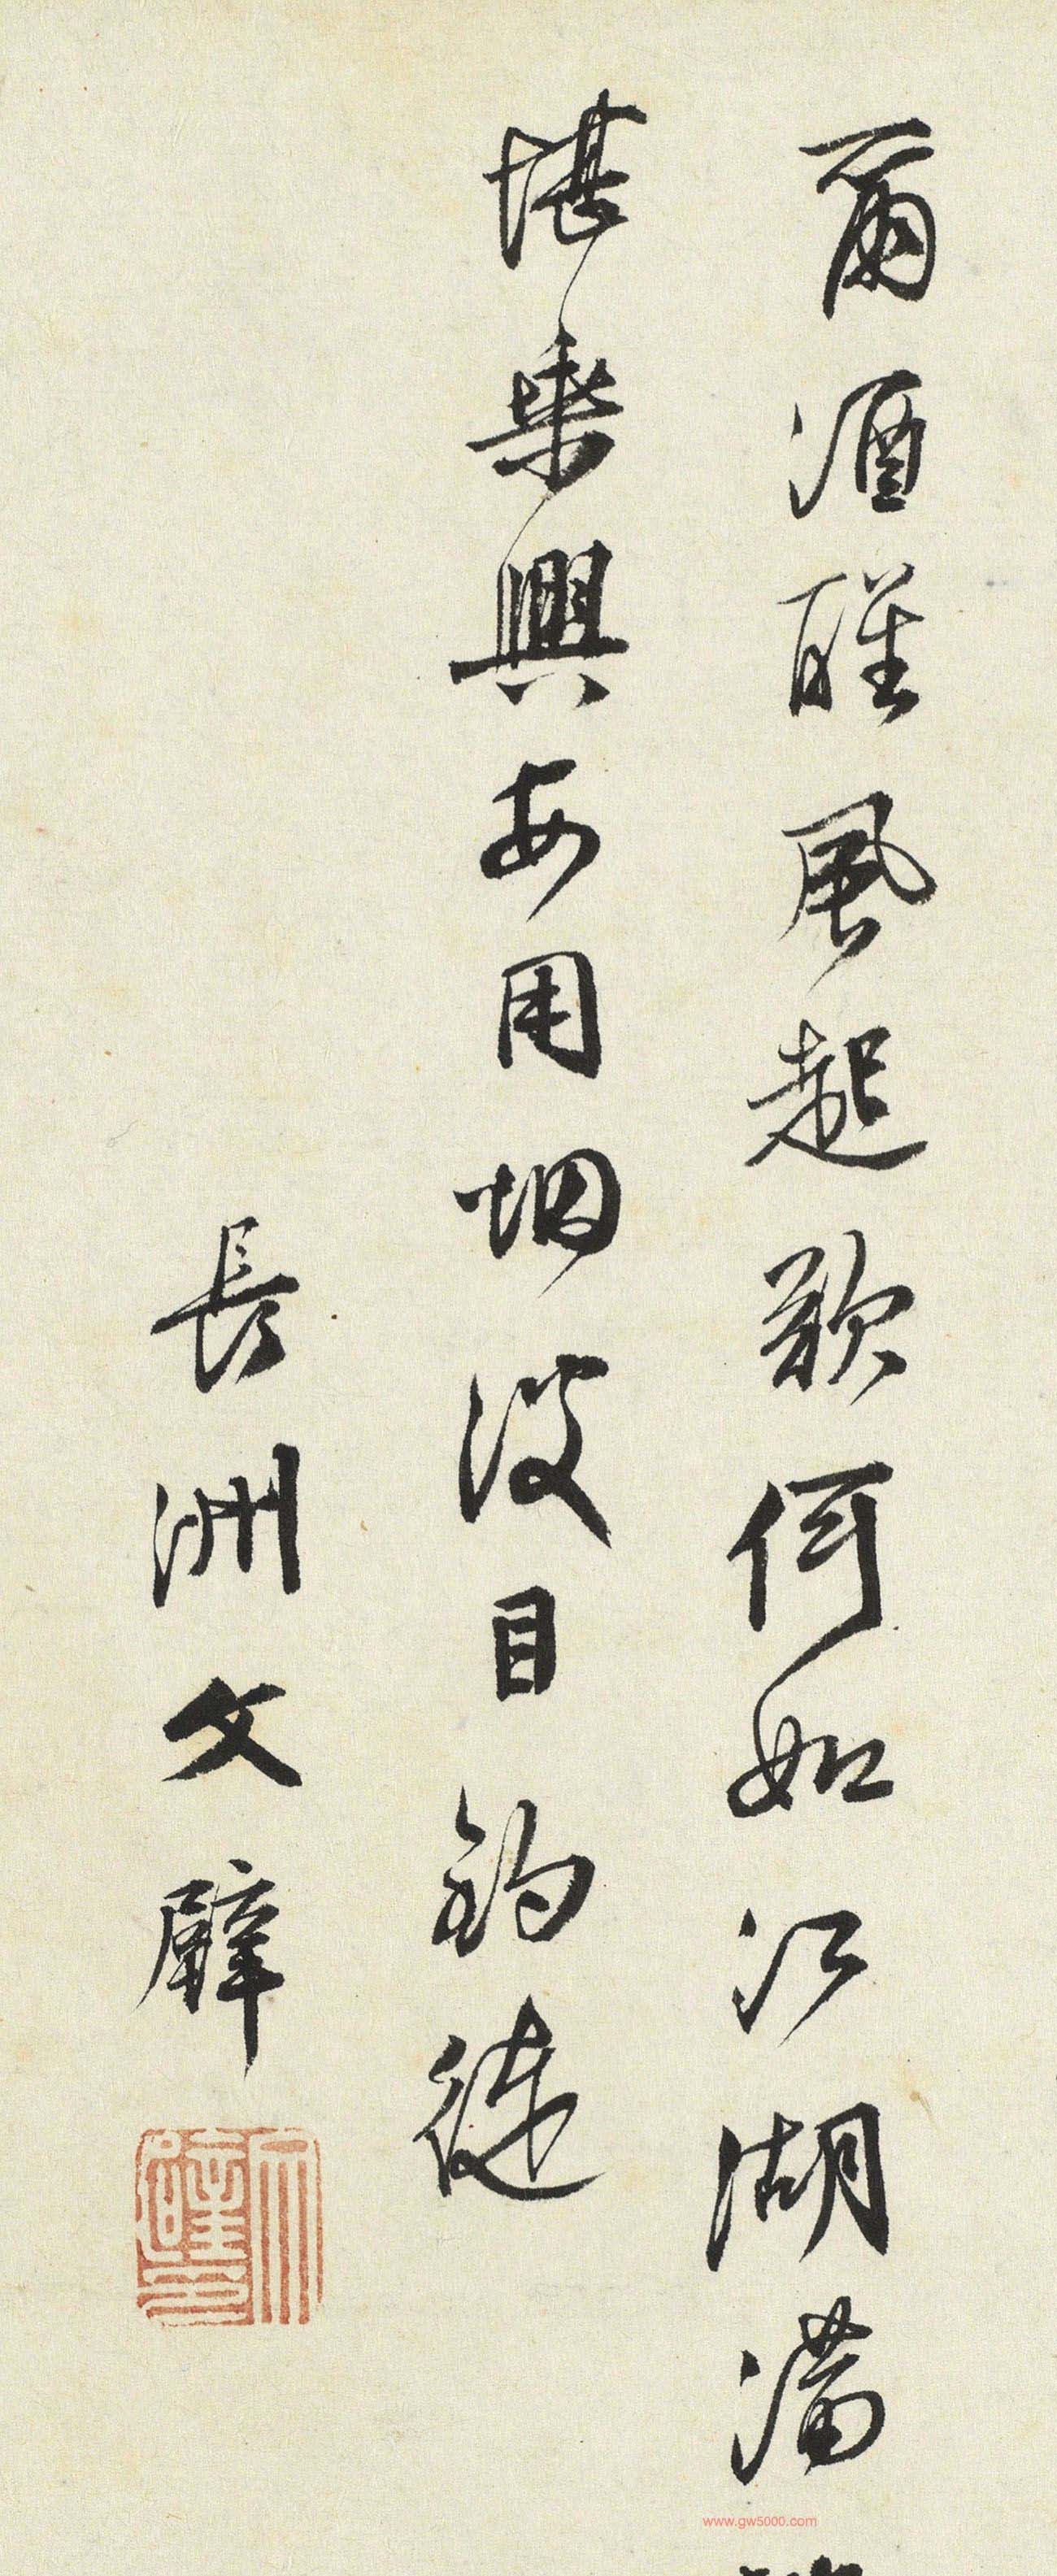 爾酒醒風起歌何如江湖滿
堪乘興安用烟波目釣徒
長洲文璧
www.gw5000.com